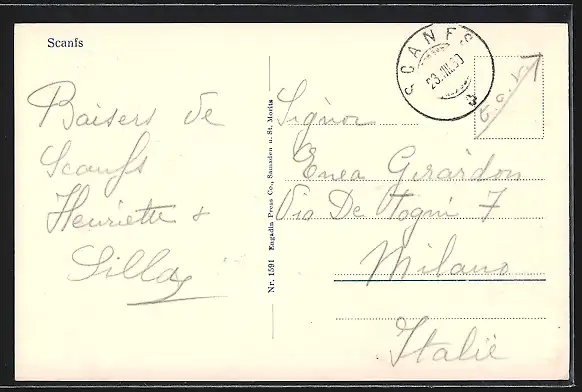 Scanfs
Baisers de
Scanfs
Henriette &
Silla
Nr. 1591 Engadin Press Co., Samaden u. St. Moritz
SCANFS
23.III.30
Signor
Enea Girardon
Via De Togni 7
Milano
Italie